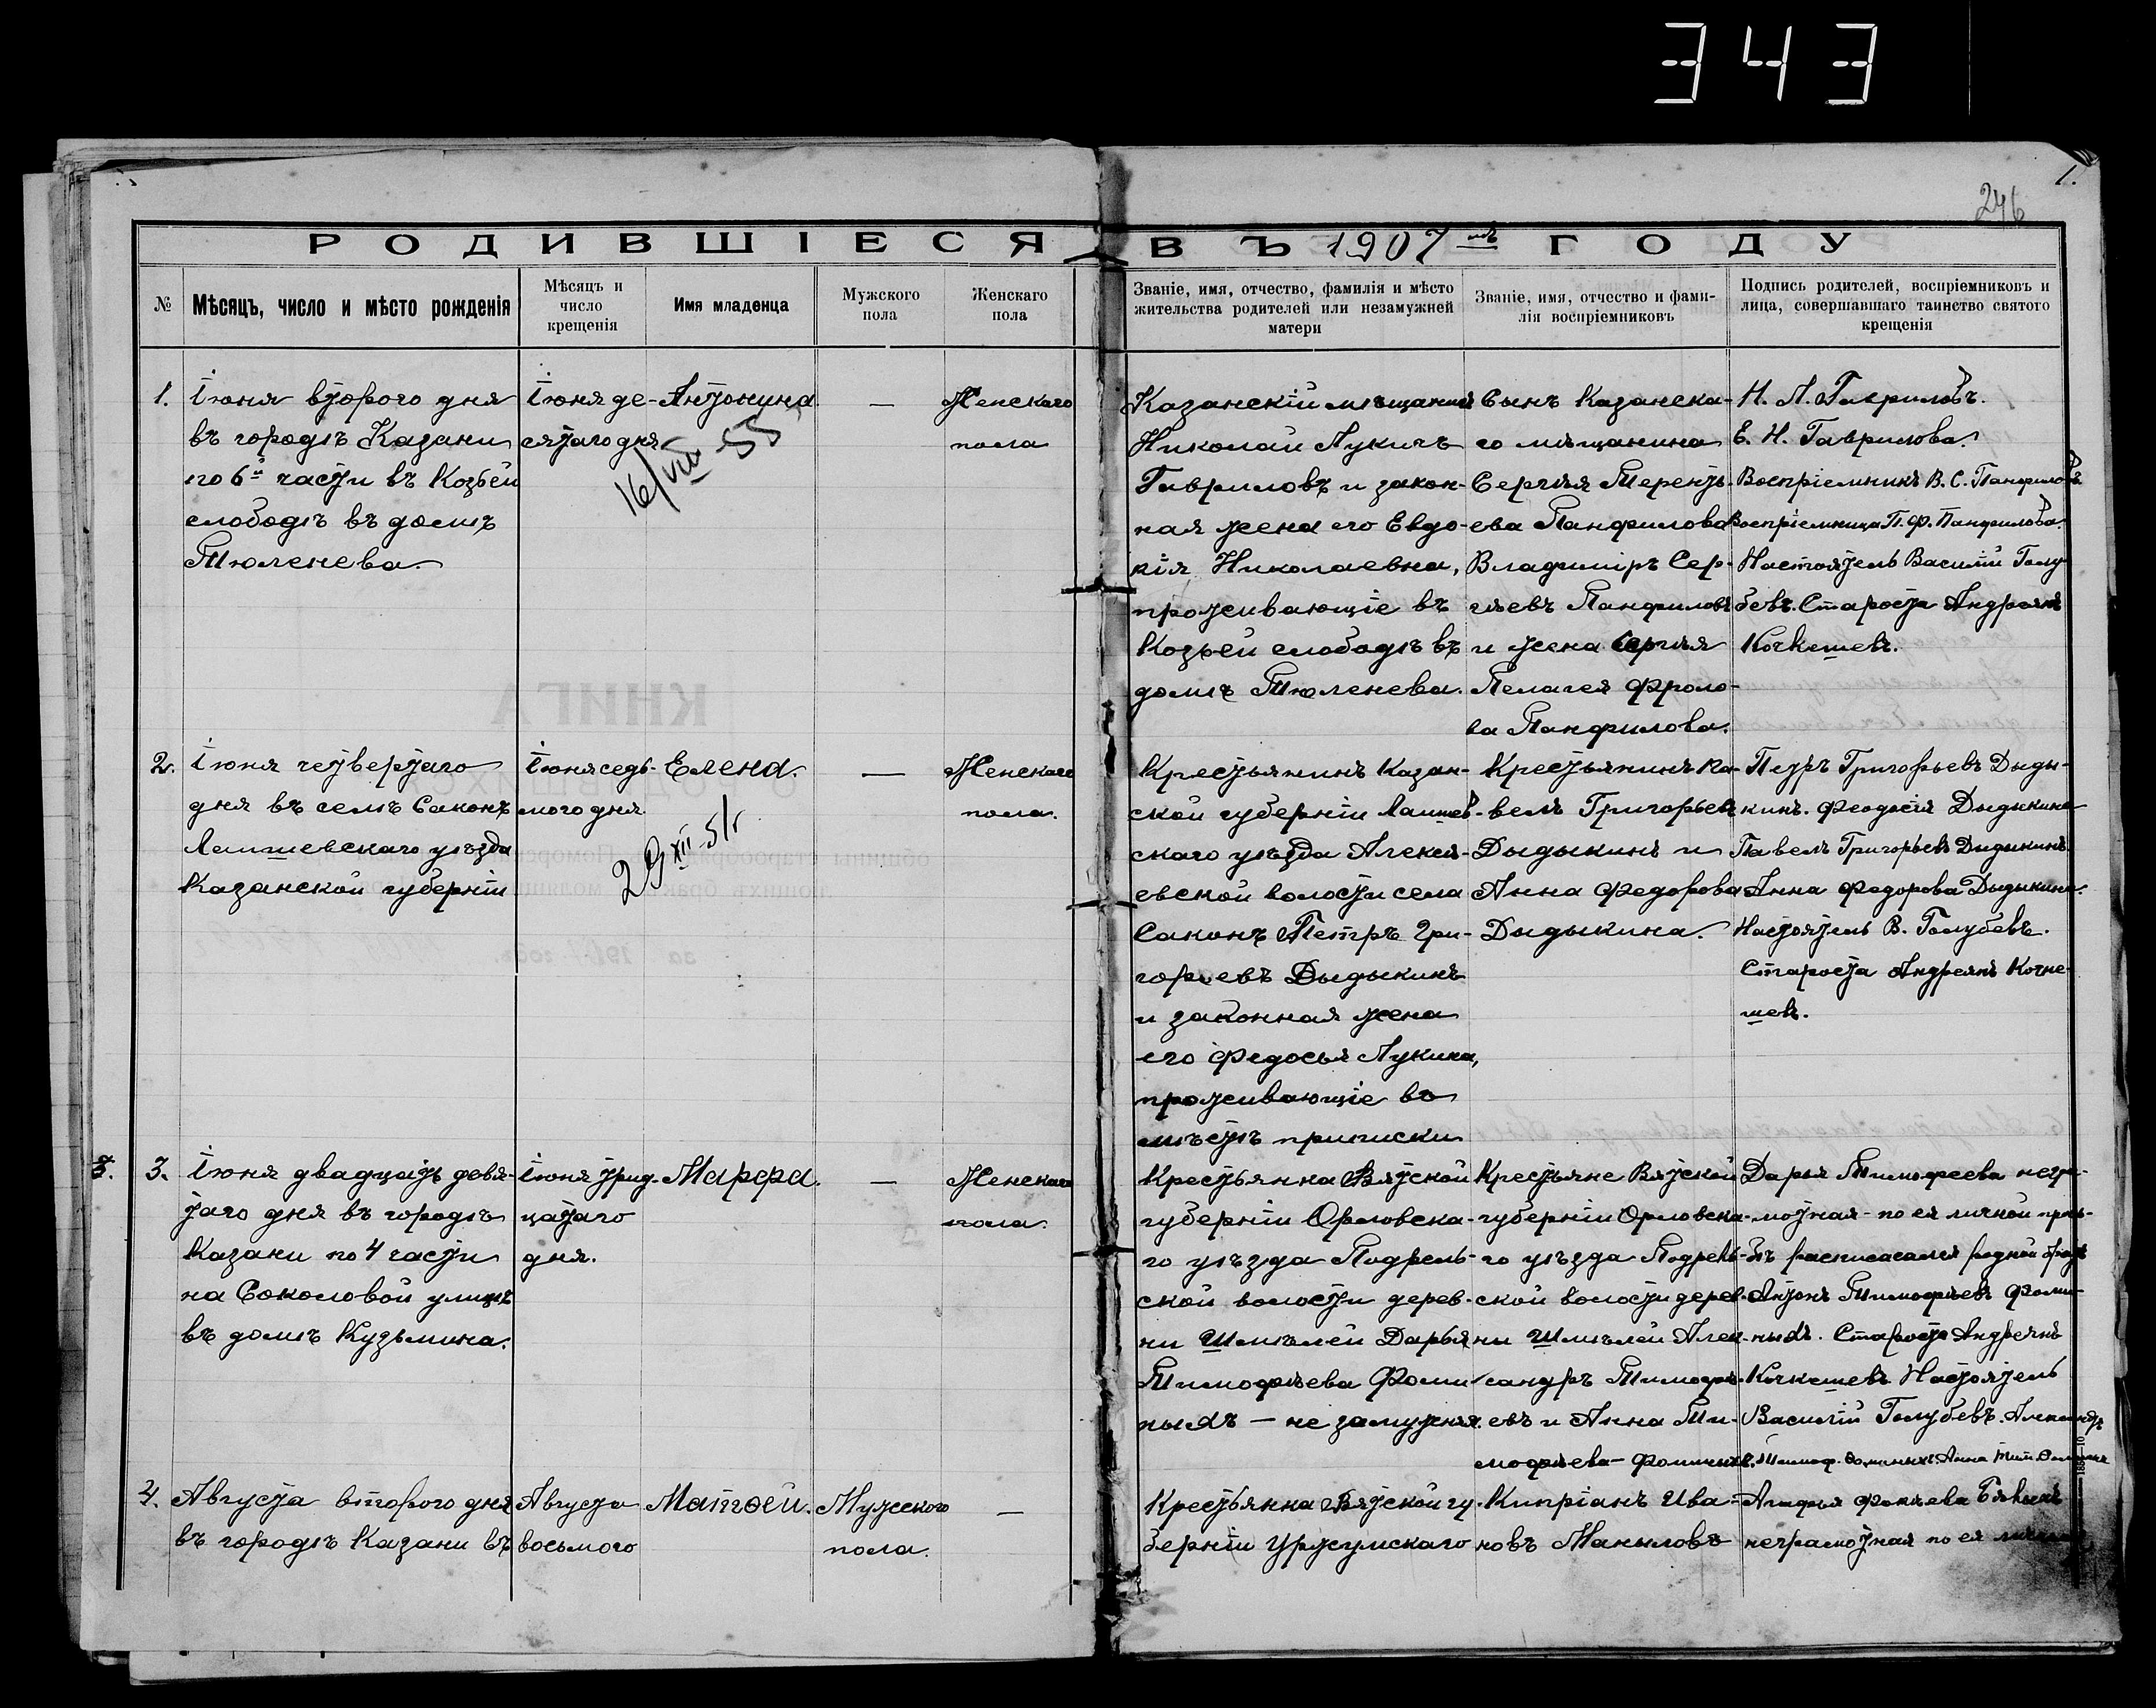 343
1.
246
РОДИВШІЕСЯ ВЪ 1907мъ ГОДУ
№
Мѣсяцъ, число и мѣсто рожденія
Мѣсяцъ и
число
крещенія
Имя младенца
Мужского
пола
Женскаго
пола
Званіе, имя, отчество, фамилія и мѣсто
жительства родителей или незамужней
матери
Званіе, имя, отчество и фами-
лія воспріемниковъ
Подпись родителей, воспріемниковъ и
лица, совершавшаго таинство святого
крещенія
1.
Іюня второго дня
въ городѣ Казани
по 6й части въ Козьей
слободѣ въ домѣ
Тюленева.
Іюня де-
сятаго дня
Антонина.
16/VIII-55
—
Женскаго
пола
Казанскій мѣщанинъ
Николай Лукичъ
Гавриловъ и закон-
ная жена его Евдо-
кія Николаевна,
проживающіе въ
Козьей слободѣ въ
домѣ Тюленева.
Сынъ Казанска-
го мѣщанина
Сергѣя Теренть-
ева Панфилова
Владиміръ Сер-
гѣевъ Панфиловъ
и жена Сергѣя
Пелагея Фроло-
ва Панфилова.
Н. Л. Гавриловъ.
Е. Н. Гаврилова.
Воспріемникъ В. С. Панфиловъ
Воспріемница П. Ф. Панфилова.
Настоятель Василій Голу-
бевъ. Староста Андреянъ
Кочкешевъ.
2.
Іюня четвертаго
дня въ селѣ Саконъ
Лаишевскаго уѣзда
Казанской губерніи
Іюня седь-
мого дня
Елена.
29 XII-51г
—
Женскаго
пола.
Крестьянинъ Казан-
ской губерніи Лаишев-
скаго уѣзда Алексѣ-
евской волости села
Саконъ Петръ Гри-
горьевъ Дыдыкинъ
и законная жена
его Федосья Лукина,
проживающіе въ
мѣстѣ приписки
Крестьянинъ Па-
велъ Григорьевъ
Дыдыкинъ и
Анна Федорова
Дыдыкина.
Петръ Григорьевъ Дыды-
кинъ. Феодосія Дыдыкина
Павелъ Григорьевъ Дыдыкинъ
Анна Федорова Дыдыкина.
Настоятель В. Голубевъ.
Староста Андреянъ Кочке-
шевъ.
3.
3.
Іюня двадцать девя-
таго дня въ городѣ
Казани по 4 части
на Соколовой улицѣ
въ домѣ Кузьмина.
Іюня трид-
цатаго
дня.
Марфа.
—
Женскаго
пола.
Крестьянка Вятской
губерніи Орловска-
го уѣзда Подрель-
ской волости дерев-
ни Шмѣлей Дарья
Тимофѣева Фоми-
ныхъ — не замужняя.
Крестьяне Вятской
губерніи Орловска-
го уѣзда Подрель-
ской волости дерев-
ни Шмѣлей Алек-
сандръ Тимофѣ-
евъ и Анна Ти-
мофѣева-Фоминыхъ.
Дарья Тимофеева негра-
мотная - по ея личной прось-
бѣ расписался родной братъ
Антонъ Тимофѣевъ Фоми-
ныхъ. Староста Андреянъ
Кочкешевъ Настоятель
Василій Голубевъ. Александръ
Тимоф. Фоминыхъ Анна Тим. Фоминыхъ
4.
Августа второго дня
въ городѣ Казани въ
Августа
восьмого
Матѳей.
Мужского
пола.
—
Крестьянка Вятской гу-
берніи Уржумскаго
Кипріанъ Ива-
новъ Маныловъ
Агафья Фокѣева
неграмотная по ея личной